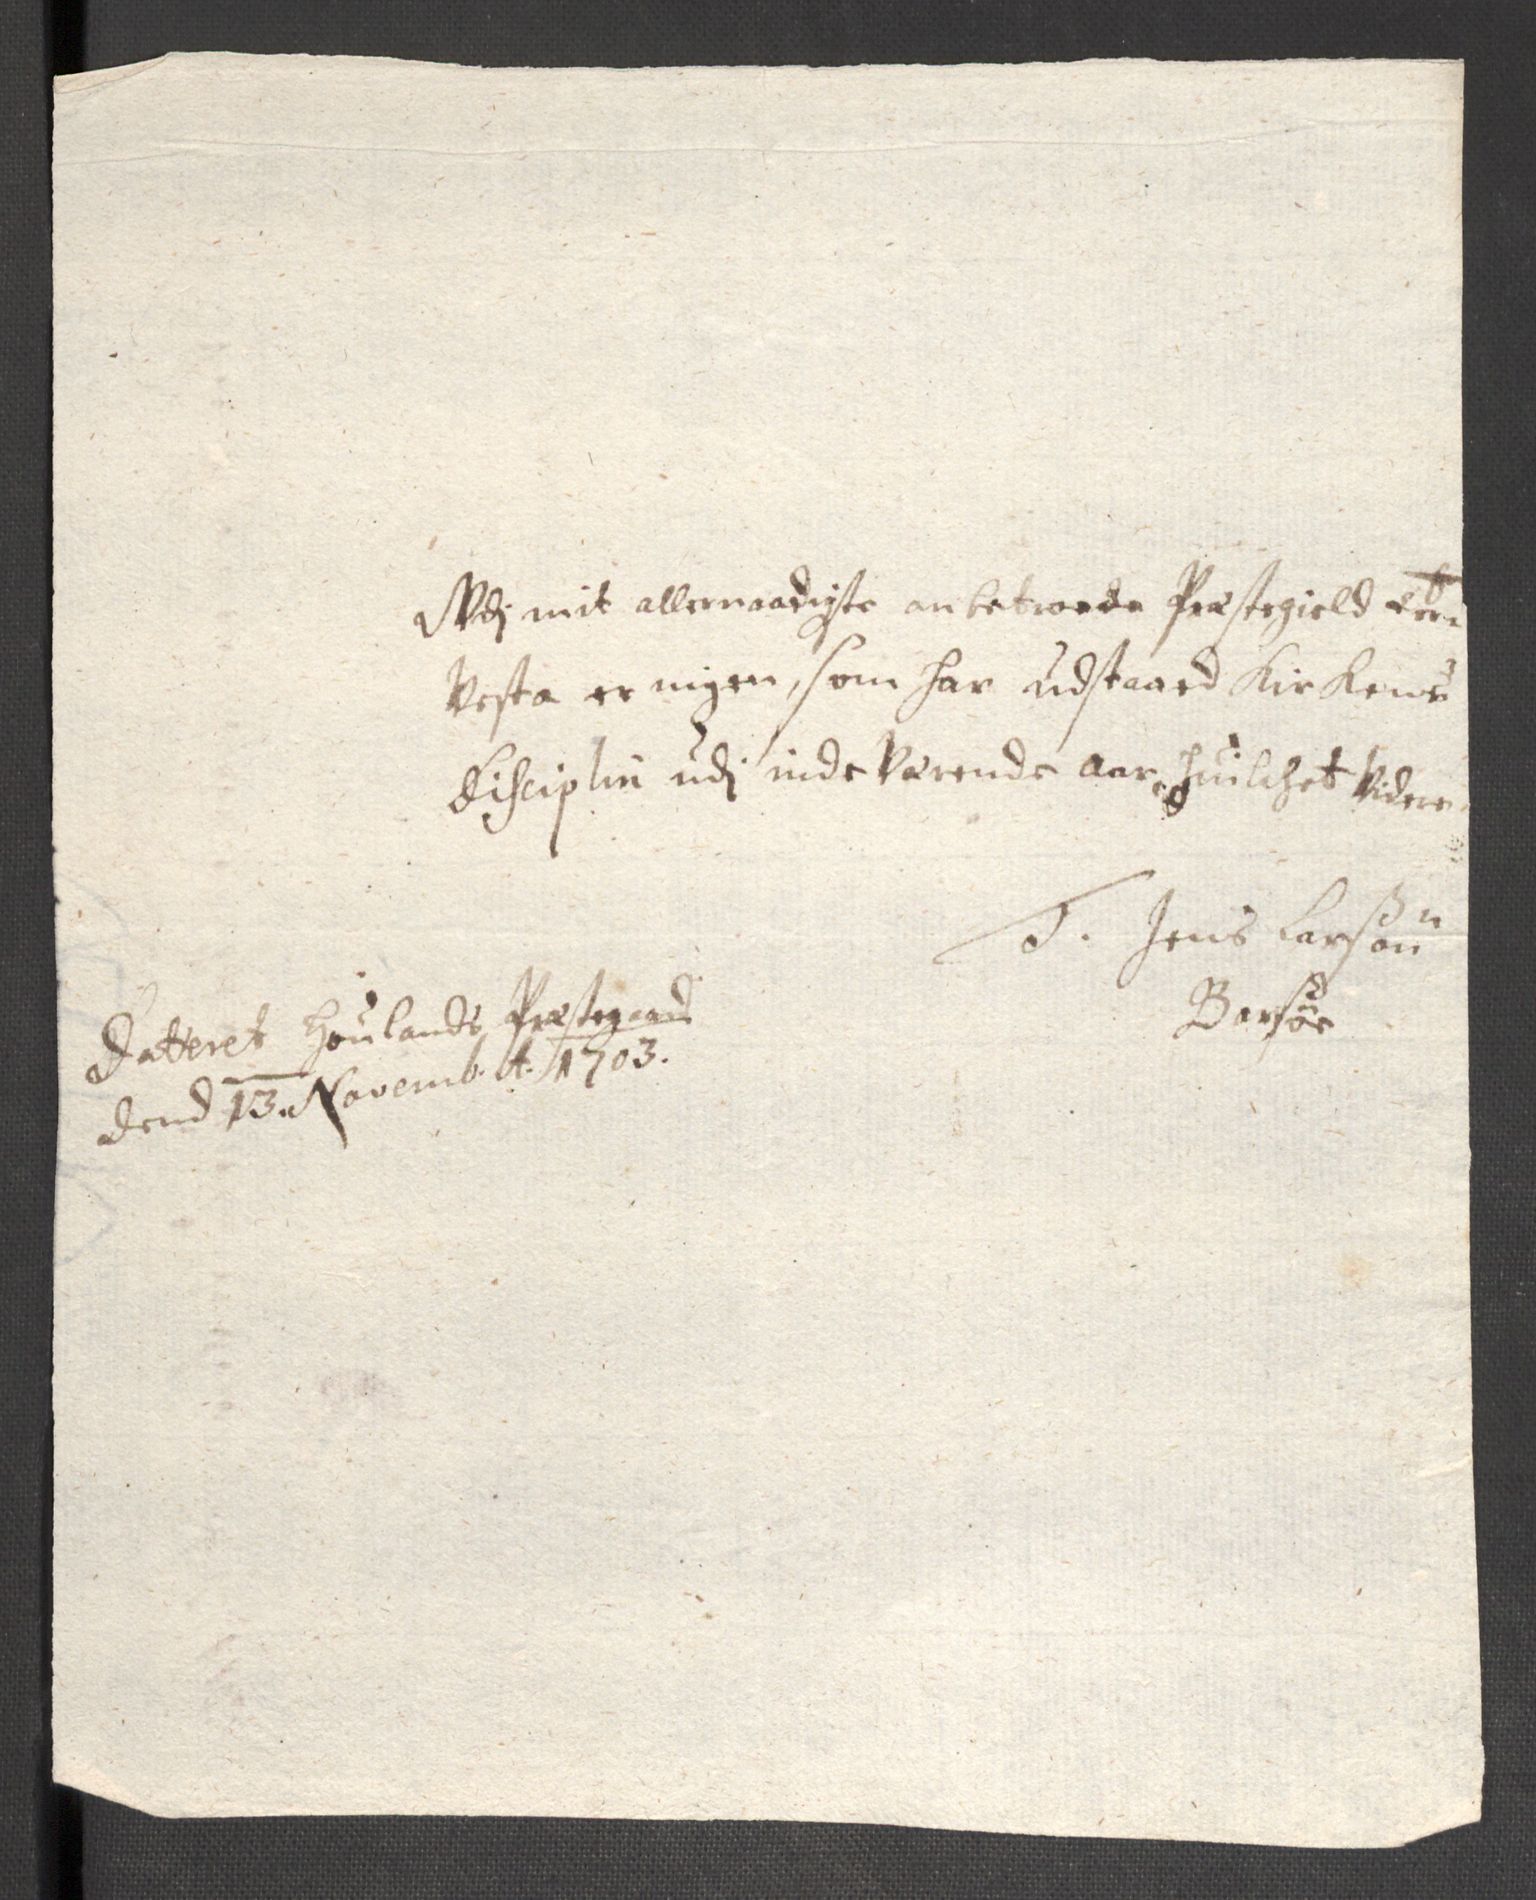 Udj mit allernaadigste anbetroede Præstegield
Vesta er ingen, som har udstaaed Kirkens
disciplin udj indeværende Aar, huilchet vidner
T. Jens Larsøn
Barsøe
Datteret Houlands Præstegaard
dend 13. Novemb. A. 1703.